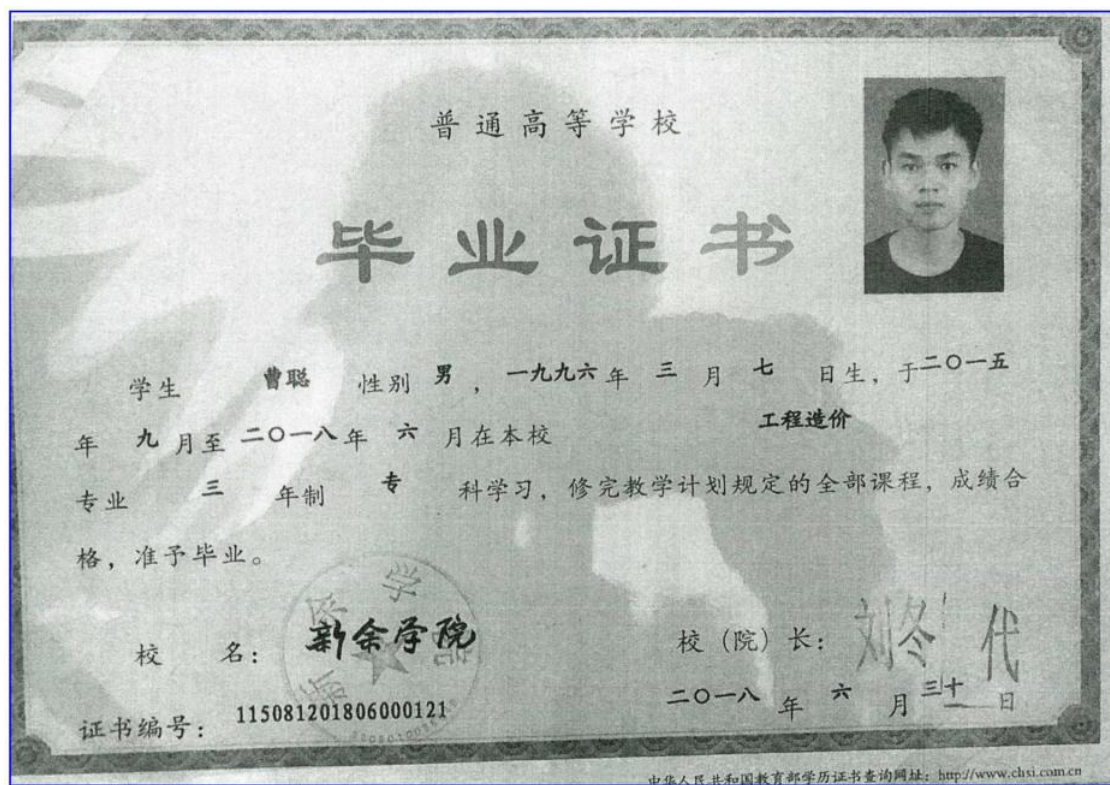 普通高等学校
毕业证书
学生 曹聪 性别 男，一九九六年 三 月 七 日生，于二〇一五
年 九 月至 二〇一八年 六 月在本校 工程造价
专业 三 年制 专 科学习，修完教学计划规定的全部课程，成绩合
格，准予毕业。
校 名：新余学院 校（院）长：刘冬 代
二〇一八 年 六 月 三十 日
证书编号：115081201806000121
中华人民共和国教育部学历证书查询网址：http://www.chsi.com.cn